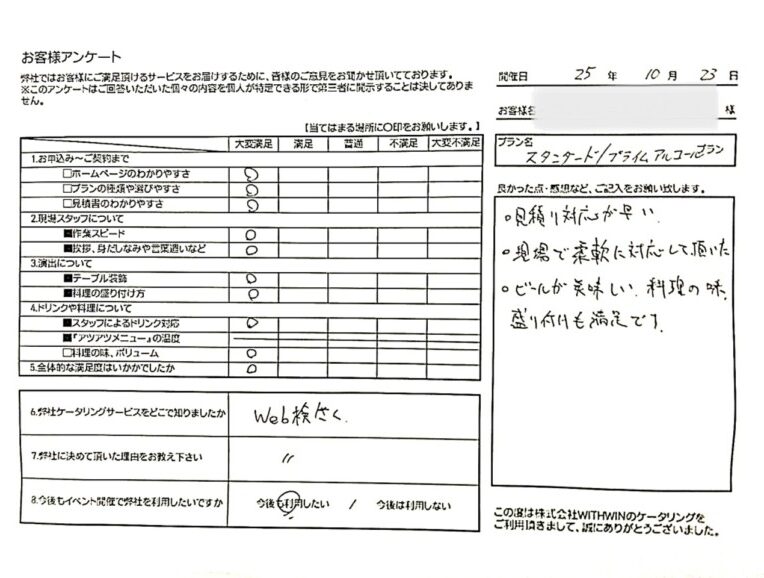 お客様アンケート
弊社ではお客様にご満足頂けるサービスをお届けするために、皆様のご意見をお聞かせ頂いております。
※このアンケートはご回答いただいた個々の内容を個人が特定できる形で第三者に開示することは決してありま
せん。
【当てはまる場所に〇印をお願いします。】
大変満足 満足 普通 不満足 大変不満足
1.お申込み～ご契約まで
□ホームページのわかりやすさ ○
□プランの種類や選びやすさ ○
□見積書のわかりやすさ ○
2.現場スタッフについて
■作業スピード ○
■挨拶、身だしなみや言葉遣いなど ○
3.演出について
■テーブル装飾 ○
■料理の盛り付け方 ○
4.ドリンクや料理について
■スタッフによるドリンク対応 ○
■『アツアツメニュー』の温度
□料理の味、ボリューム ○
5.全体的な満足度はいかかでしたか ○
6.弊社ケータリングサービスをどこで知りましたか Web検さく.
7.弊社に決めて頂いた理由をお教え下さい 〃
8.今後もイベント開催で弊社を利用したいですか 今後も利用したい / 今後は利用しない
開催日 25 年 10 月 23 日
お客様名 様
プラン名
スタンダード/プライムアルコールプラン
良かった点・感想など、ご記入をお願い致します。
○見積り対応が早い.
○現場で柔軟に対応して頂いた
○ビールが美味しい. 料理の味.
盛り付けも満足です.
この度は株式会社WITHWINのケータリングを
ご利用頂きまして、誠にありがとうございました。